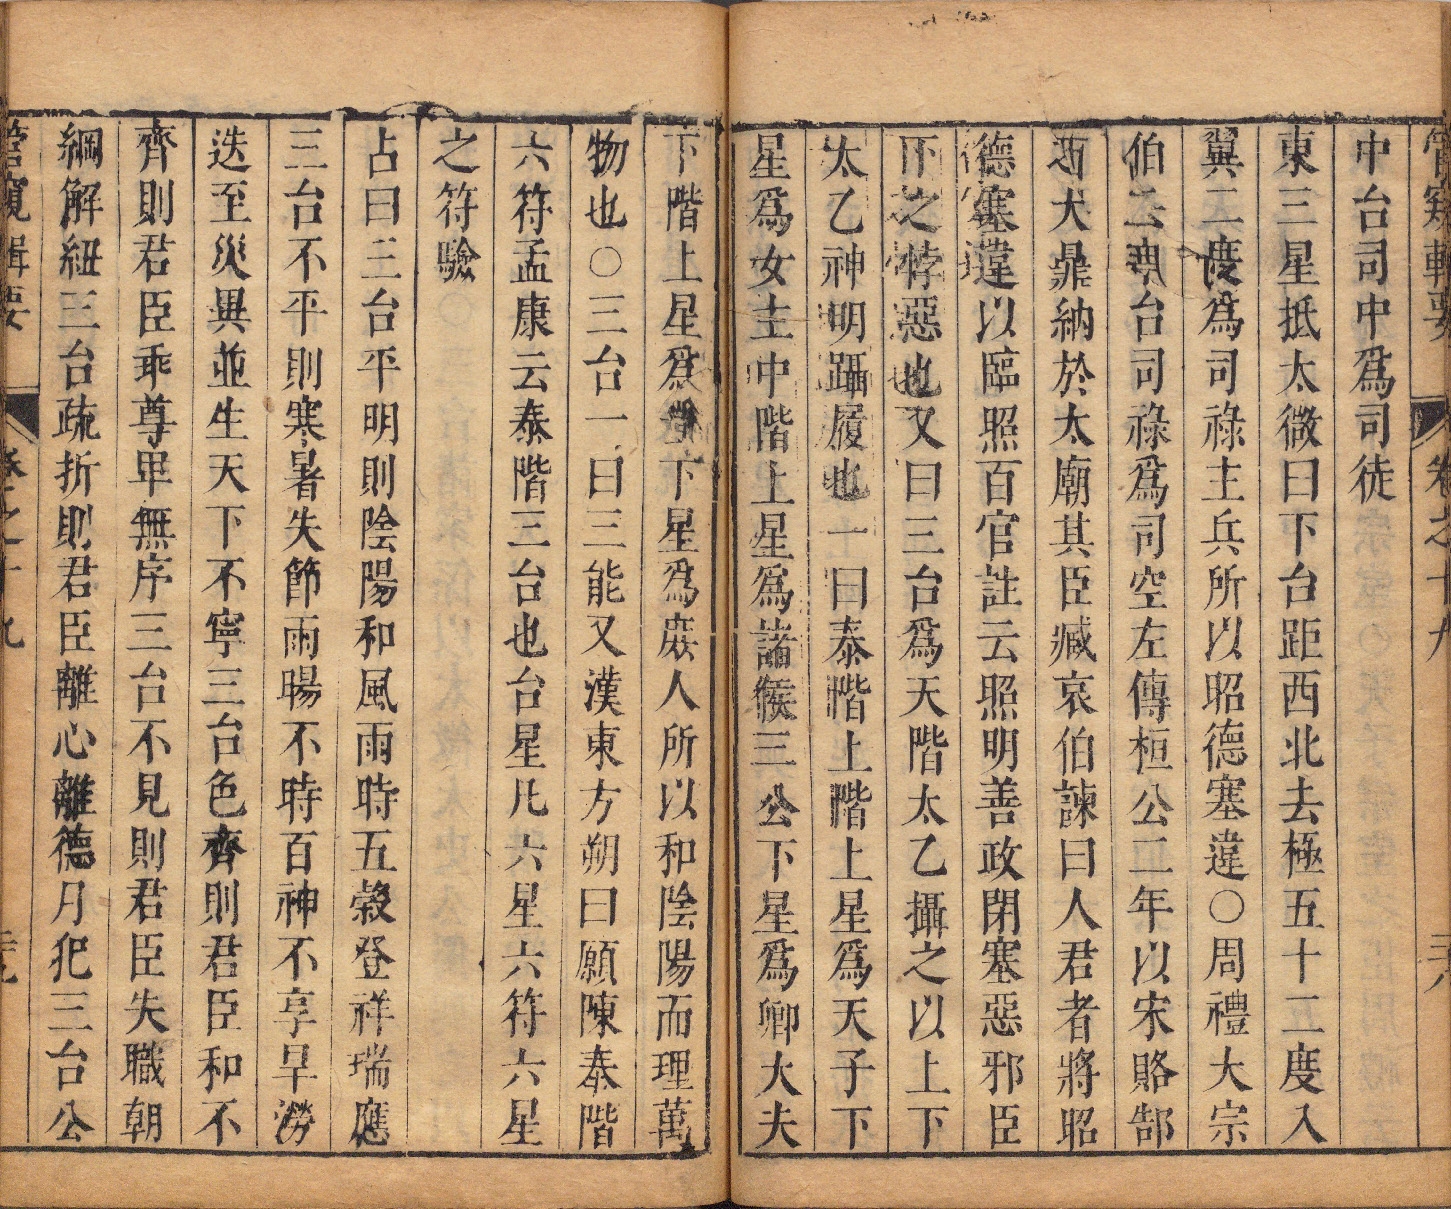 管窺輯要 卷之十九 三十八
中台司中爲司徒
東三星抵太微曰下台距西北去極五十二度入
翼二度爲司祿主兵所以昭德塞違○周禮大宗
伯云軒台司祿爲司空左傳桓公二年以宋賂郜
大鼎納於太廟其臣臧哀伯諫曰人君者將昭
德塞違以臨照百官註云照明善政閉塞惡邪臣
下之悖惡也又曰三台爲天階太乙攝之以上下
太乙神明躡履也一曰泰階上階上星爲天子下
星爲女主中階上星爲諸侯三公下星爲卿大夫
下階上星爲士下星爲庻人所以和陰陽而理萬
物也○三台一曰三能又漢東方朔曰願陳泰階
六符孟康云泰階三台也台星凡六星六符六星
之符驗
占曰三台平明則陰陽和風雨時五穀登祥瑞應
三台不平則寒暑失節雨暘不時百神不享旱澇
迭至災異並生天下不寧三台色齊則君臣和不
齊則君臣乖尊卑無序三台不見則君臣失職朝
綱解紐三台疏折則君臣離心離德月犯三台公
管窺輯要 卷之十九